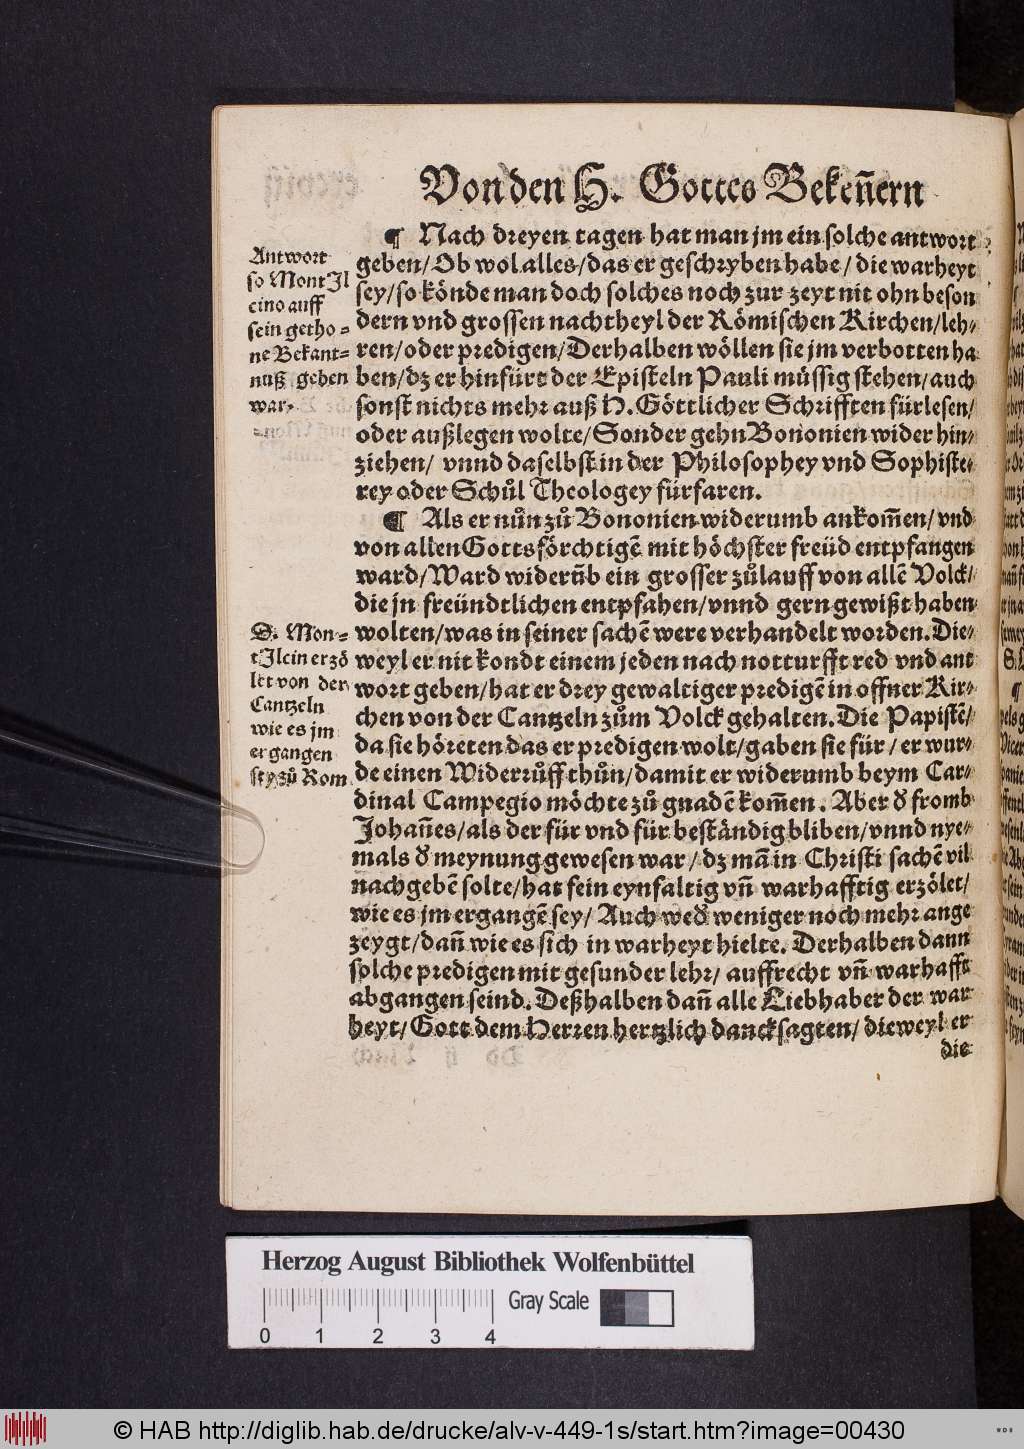 Von den H. Gottes Bekeñern
¶ Nach dreyen tagen hat man jm ein solche antwort
geben/ Ob wol alles/ das er geschryben habe/ die warheyt
sey/ so könde man doch solches noch zur zeyt nit ohn beson
dern vnd grossen nachtheyl der Römischen Kirchen/ leh⸗
ren/ oder predigen/ Derhalben wöllen sie jm verbotten ha
ben/ dz er hinfürt der Episteln Pauli müssig stehen/ auch
sonst nichts mehr auß H. Göttlicher Schrifften fürlesen/
oder außlegen wolte/ Sonder gehn Bononien wider hin⸗
ziehen/ vnnd daselbst in der Philosophey vnd Sophiste⸗
rey oder Schůl Theologey fürfaren.
Antwort
so Mont Jl
cino auff
sein getho⸗
ne Bekant⸗
nuß geben
war.
¶ Als er nůn zů Bononien widerumb ankom̃en/ vnd
von allen Gottsförchtigẽ mit höchster freüd entpfangen
ward/ Ward widerũb ein grosser zůlauff von allẽ Volck/
die jn freündtlichen entpfahen/ vnnd gern gewißt haben
wolten/ was in seiner sachẽ were verhandelt worden. Die⸗
weyl er nit kondt einem jeden nach notturfft red vnd ant
wort geben/ hat er drey gewaltiger predigẽ in offner Kir⸗
chen von der Cantzeln zům Volck gehalten. Die Papistẽ/
da sie höreten das er predigen wolt/ gaben sie für/ er wur⸗
de einen Widerrůff thůn/ damit er widerumb beym Car⸗
dinal Campegio möchte zů gnadẽ kom̃en. Aber d̃ fromb
Johañes/ als der für vnd für beständig bliben/ vnnd nye⸗
mals d̃ meynung gewesen war/ dz mã in Christi sachẽ vil
nachgebẽ solte/ hat fein eynfaltig vñ warhafftig erzölet/
wie es jm ergangẽ sey/ Auch wed̃ weniger noch mehr ange
zeygt/ dañ wie es sich in warheyt hielte. Derhalben dann
solche predigen mit gesunder lehr/ auffrecht vñ warhafft
abgangen seind. Deßhalben dañ alle Liebhaber der war
heyt/ Gott dem Herren hertzlich dancksagten/ dieweyl er
die
D. Mon⸗
t Jlcin erzö
let von der
Cantzeln
wie es jm
ergangen
sey zů Rom
Herzog August Bibliothek Wolfenbüttel
Gray Scale
0 1 2 3 4
© HAB http://diglib.hab.de/drucke/alv-v-449-1s/start.htm?image=00430